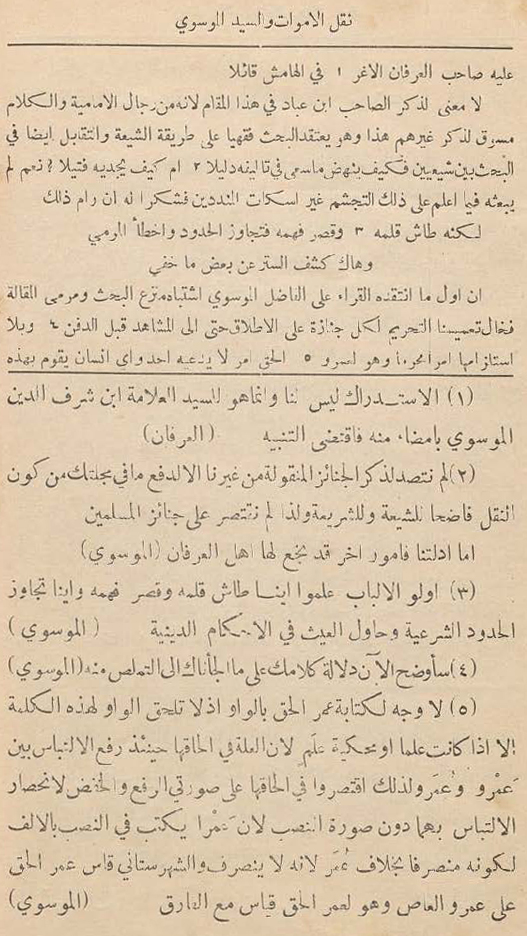 نقل الاموات والسيد الموسوي
عليه صاحب العرفان الاغر ١ في الهامش قائلا
لا معنى لذكر الصاحب ابن عباد في هذا المقام لانه من رجال الامامية والكلام
مسوق لذكر غيرهم هذا وهو يعتقد البحث فقهيا على طريقة الشيعة والتقابل ايضا في
البحث بين شيعيين فكيف ينهض ما سعى في تاليفه دليلا ٢ ام كيف يجديه فتيلا ? نعم لم
يبعثه فيما اعلم على ذلك التجشم غير اسكات المنددين فشكرا له ان رام ذلك
لكنه طاش قلمه ٣ وقصر فهمه فتجاوز الحدود واخطأ المرمي
وهاك كشف الستر عن بعض ما خفي
ان اول ما انتقده القراء على الفاضل الموسوي اشتباه منزع البحث ومرمى المقالة
فخال تعميمنا التحريم لكل جنازة على الاطلاق حتى الى المشاهد قبل الدفن ٤ وبلا
استلزامها امرا محرما وهو لعمرو ٥ الحق امر لا يدعيه احد واي انسان يقوم بهذه
(١) الاستدراك ليس لنا وانما هو للسيد العلامة ابن شرف الدين
الموسوي بامضاء منه فاقتضى التنبيه (العرفان)
(٢) لم نتصد لذكر الجنائز المنقولة من غيرنا الا لدفع ما في مجلتك من كون
النقل فاضحا للشيعة وللشريعة ولذا لم نقتصر على جنائز المسلمين
اما ادلتنا فامور اخر قد بخع لها اهل العرفان (الموسوي)
(٣) اولو الالباب علموا اينا طاش قلمه وقصر فهمه واينا تجاوز
الحدود الشرعية وحاول العيث في الاحكام الدينية (الموسوي)
(٤) سأوضح الآن دلالة كلامك على ما الجأناك الى التملص منه (الموسوي)
(٥) لا وجه لكتابة عمر الحق بالواو اذ لا تلحق الواو لهذه الكلمة
إلا اذا كانت علما او محكية علم لان العلة في الحاقها حينئذ رفع الالتباس بين
عَمْرو وعُمَر ولذلك اقتصروا في الحاقها على صورتي الرفع والخفض لانحصار
الالتباس بهما دون صورة النصب لان عَمْرا يكتب في النصب بالالف
لكونه منصرفا بخلاف عُمَر لانه لا ينصرف والشهرستاني قاس عمر الحق
على عمرو العاص وهو لعمر الحق قياس مع الفارق (الموسوي)